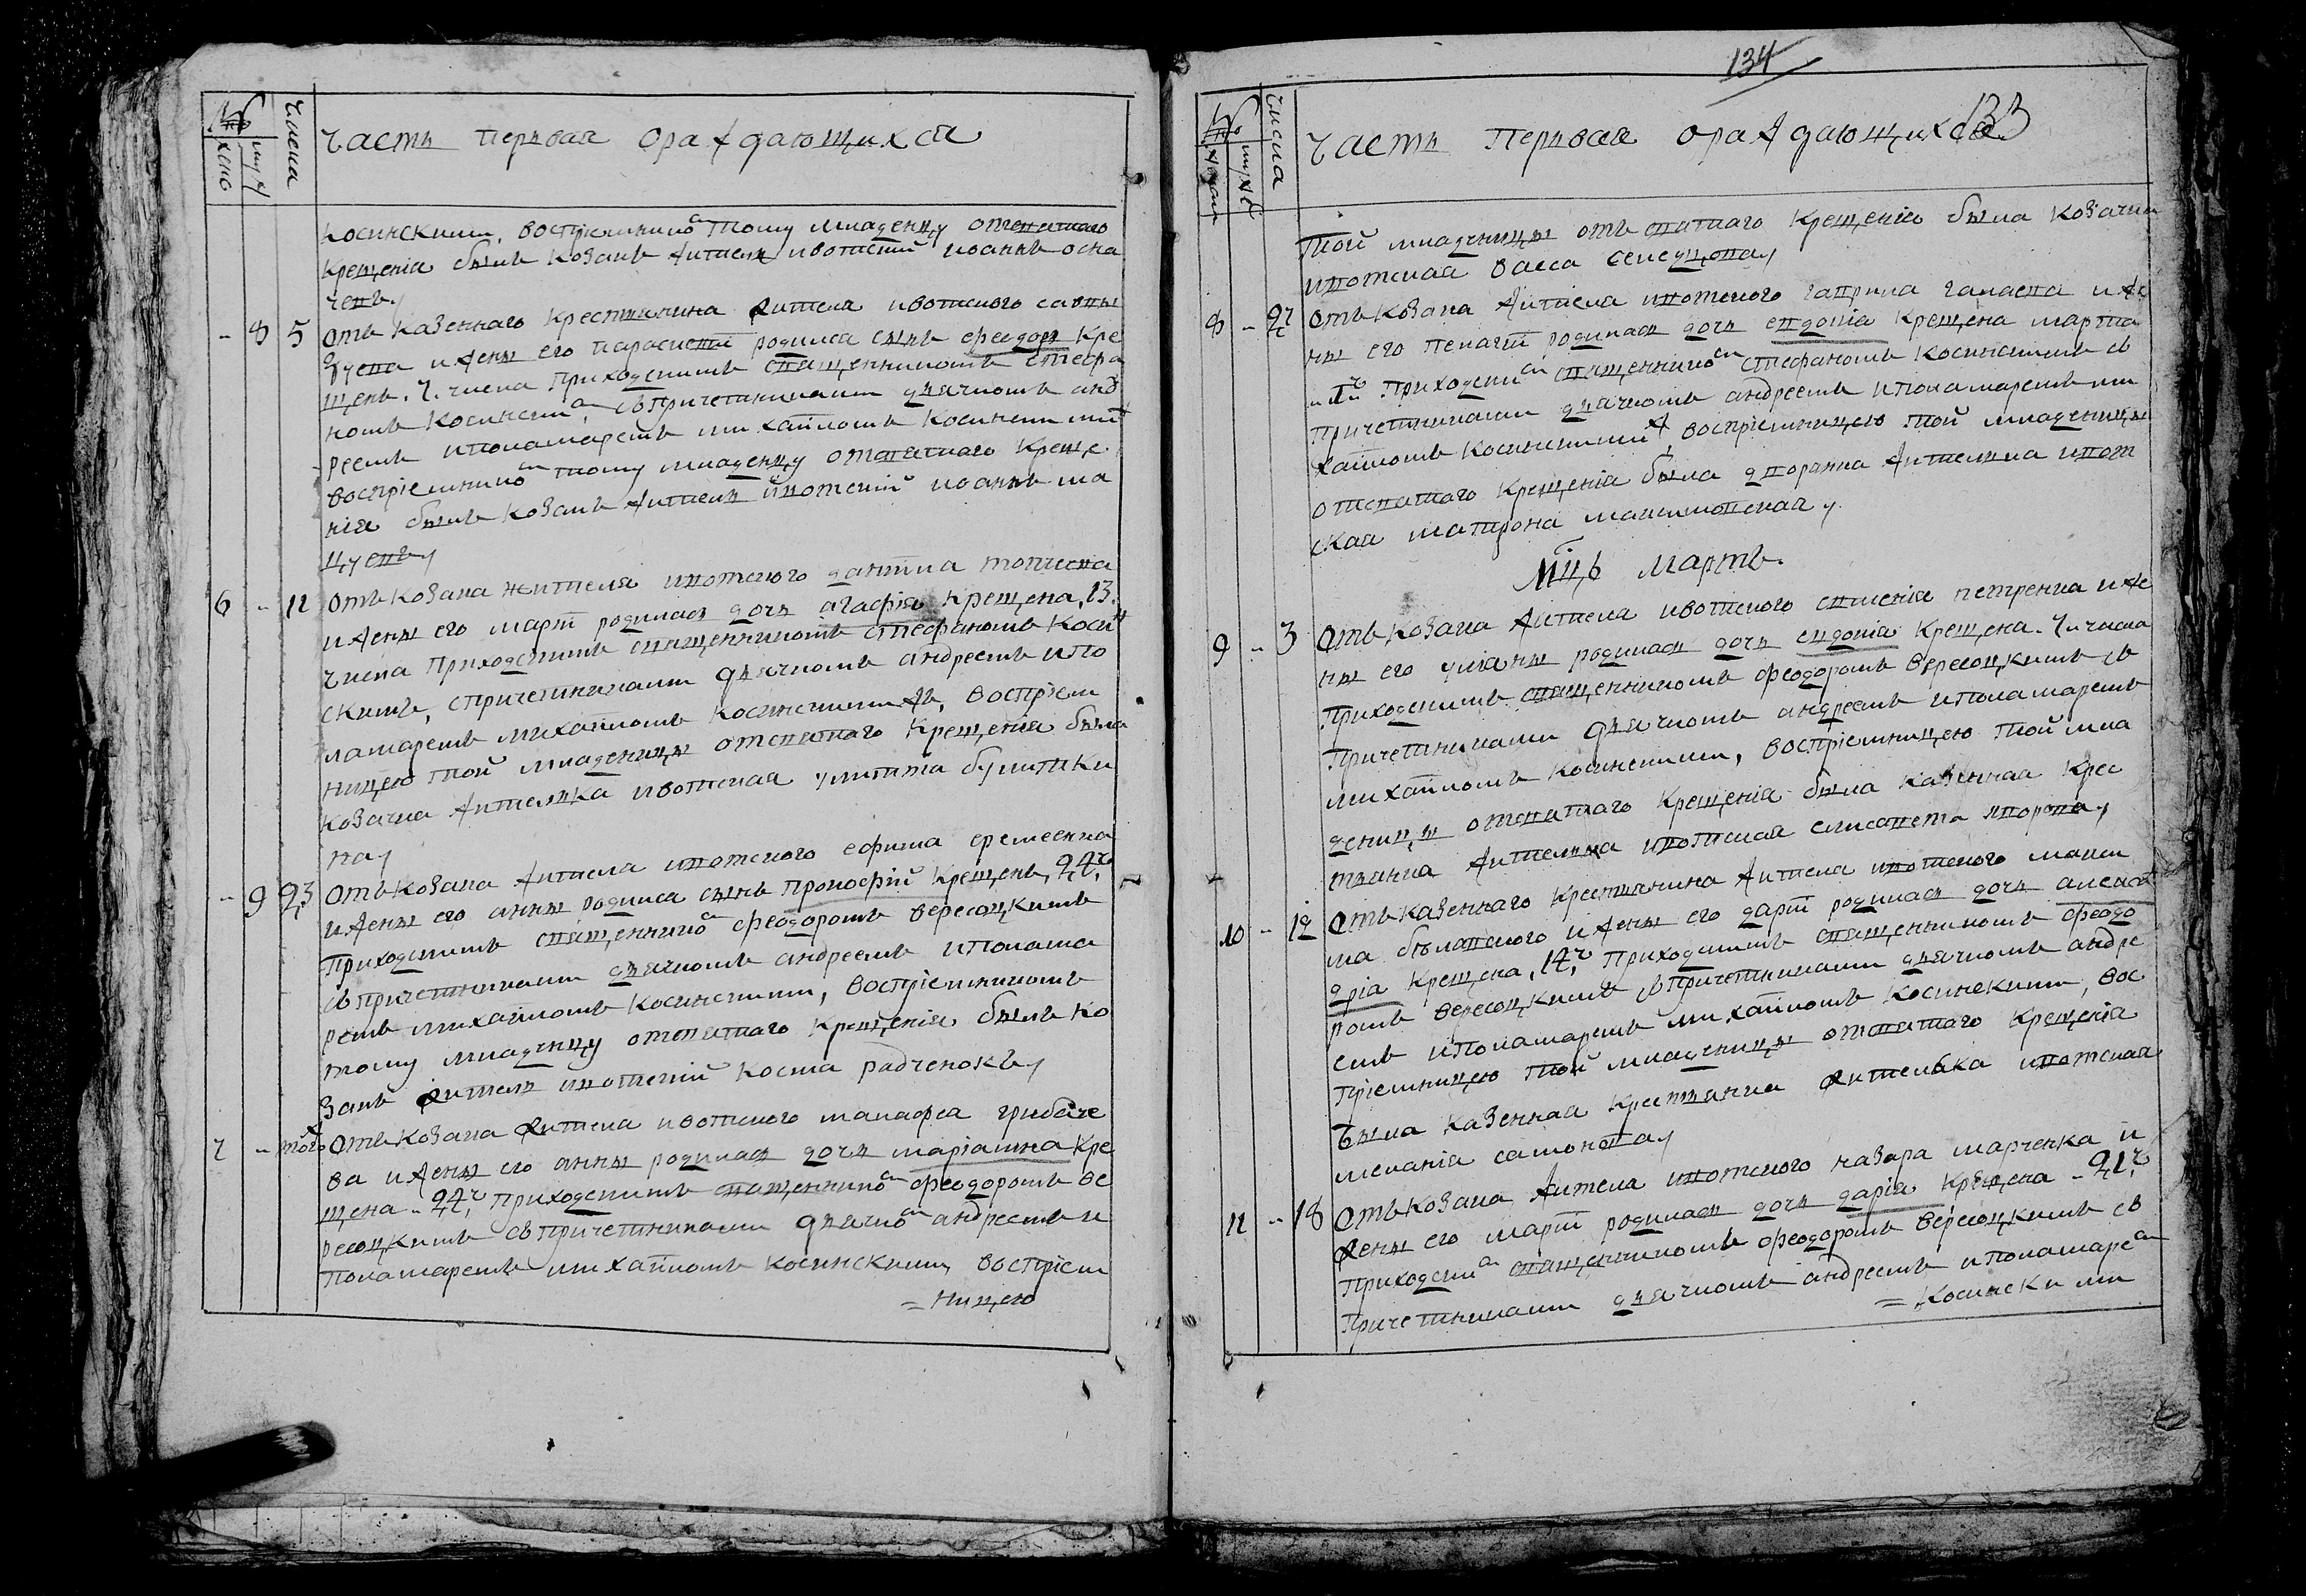 134
№
Числа
муж
жено
Часть первая ораждающихся
косинскими, воспрiемникомъ тому младенцу отсвятаго
крещенiя былъ козакъ житель ивотскiй иоаннъ оска
ченъ
- 8 5 Отъ казеннаго крестьянина жителя ивотского саввы
зуева и жены его параскевiи родился сынъ феодоръ кре
щенъ 7. числа приходскимъ священникомъ стефа
номъ косинскимъ, съ причетниками дьячкомъ анд
реемъ и пономаремъ михаиломъ косинскими
воспрiемникомъ тому младенцу отсвятаго креще
нiя былъ козакъ житель ивотскiй иоаннъ ма
цуевъ
6 - 12 Отъ козака жителя ивотского данiила топчиева
и жены его марфы родилась дочь агафiя крещена, 13.
числа приходскимъ священникомъ стефаномъ косин
скимъ, с причетниками дьячкомъ андреемъ и по
намаремъ михаиломъ косинскими жъ, воспрiем
ницею той младеницы отсвятаго крещенiя была
козачка жителька ивотская улита булитки
на
- 9 23 Отъ козака жителя ивотского ефима еремеенка
и жены его анны родился сынъ прокофiй крещенъ, 24.
приходскимъ священникомъ феодоромъ вересоцкимъ
съ причетниками дьячкомъ андреемъ и понама
ремъ михаиломъ косинскими, воспрiемникомъ
тому младенцу отсвятаго крещенiя былъ ко
закъ житель ивотскiй косма радченокъ
7 - того ж Отъ козака жителя ивотского малафея грибаче
ва и жены его анны родилась дочь марiамна кре
щена - 24. приходскимъ священникомъ феодоромъ ве
ресоцкимъ съ причетниками дьячкомъ андреемъ и
понамаремъ михаиломъ косинскими, воспрiем
= ницею
№
Числа
муж
женска
Часть Первая ораждающихся
133
той младеницы отъ святаго крещенiя была козачка
ивотская васса селедцова
8 - 27 Отъ козака жителя ивотского гаврила галаева и же
ны его пелагiи родилась дочь евдокiя крещена марта
1го приходскимъ священникомъ стефаномъ косинскимъ съ
причетниками дьячкомъ андреемъ и понамаремъ ми
хаиломъ косинскими ж, воспрiемницею той младеницы
отсвятаго крещенiя была дворянка жителька ивот
ская матрона максимовская
Мцъ Мартъ
9 - 3 Отъ козака жителя ивотского савелiя петренка и же
ны его улiаны родилась дочь евдокiя крещена - 7. числа
приходскимъ священникомъ феодоромъ вересоцкимъ съ
причетниками дьячкомъ андреемъ и понамаремъ
михаиломъ косинскими, воспрiемницею той мла
деницы отсвятаго крещенiя была казенная крес
тьянка жителька ивотская елисавета яворова
10 - 12 Отъ казеннаго крестьянина жителя ивотского макси
ма билавского и жены его дарiи родилась дочь алексан
дрiа крещена, 14. приходскимъ священникомъ феодо
ромъ вересоцкимъ съ причетниками дьячкомъ андре
емъ и понамаремъ михаиломъ косинскими, вос
прiемницею той младеницы отсвятаго крещенiя
была казенная крестьянка жителька ивотская
меланiя самонова
11 - 18 Отъ козака жителя ивотского назара марченка и
жены его марфы родилась дочь дарiя крещена - 21.
приходскимъ священникомъ феодоромъ вересоцкимъ съ
причетниками дьячкомъ андреемъ и понамаремъ
= косинскими